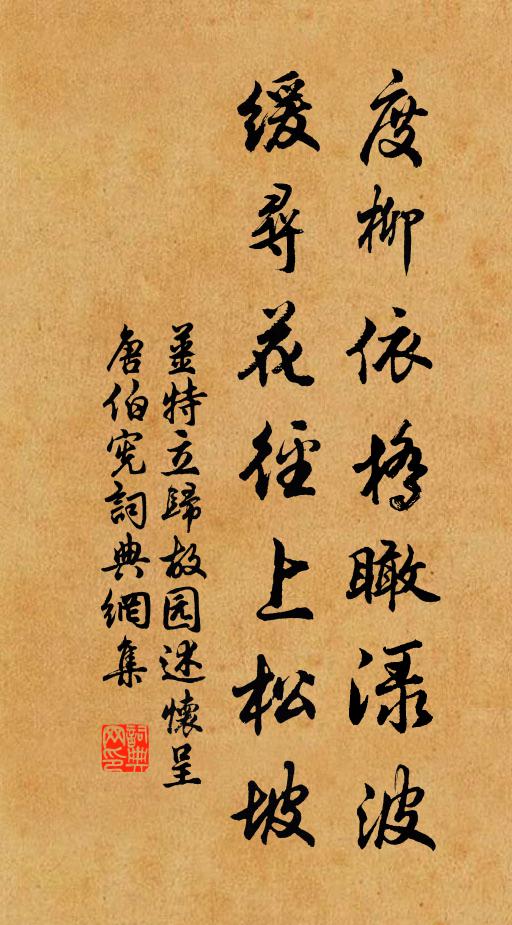 度柳依橋瞰渌波
緩尋花徑上松坡
薑特立歸故园述懷呈
唐伯宪詞典網集
詞典网印